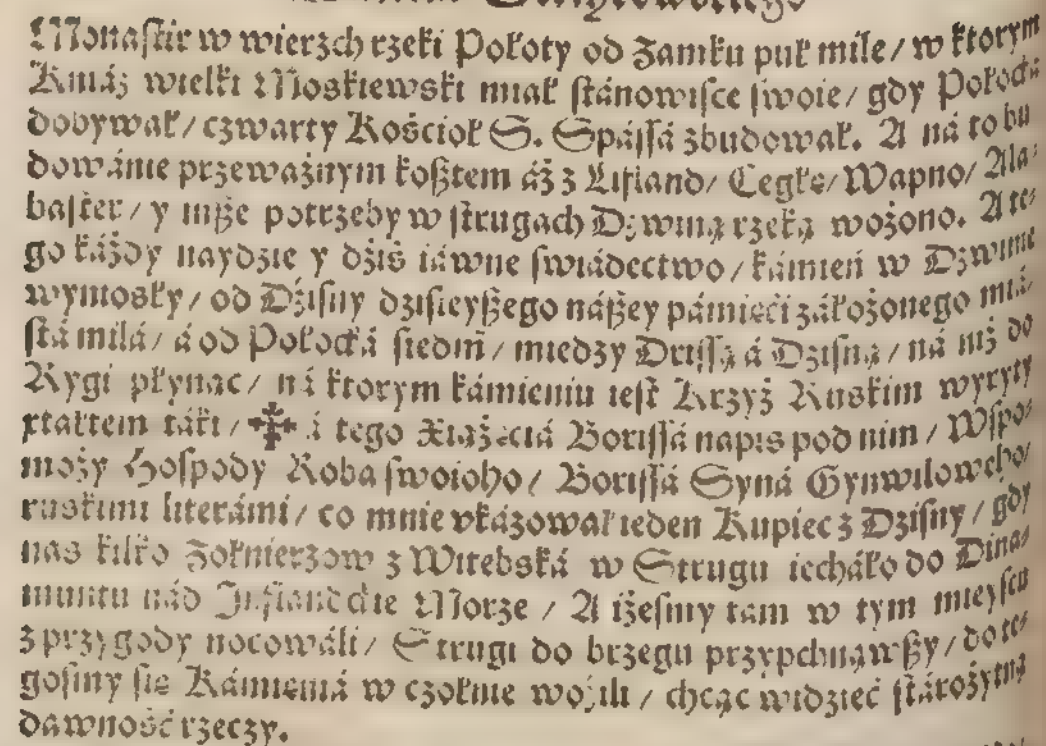 Monastir w wierzch rzeki Połoty od Zamku puł mile / w ktorym
Kniáź wielki Moskiewski miał stánowisce swoie / gdy Połocká
dobywał / czwarty Kościoł S. Spássá zbudował. A ná to bu
dowánie przeważnym kosztem áż z Lifland / Cegłę / Wapno / Ala⸗
baster / y insze potrzeby w strugach Dzwiną rzeką wożono. A te⸗
go káżdy naydzie y dziś iáwne swiádectwo / kámień w Dzwinie
wyniosły / od Dzisny dzisieyszego nászey pámięci záłożonego miá⸗
stá milá / á od Połocká siedm̃ / miedzy Drissą á Dzisną / ná niż do
Rygi płynąc / ná ktorym kámieniu iest Krzyż Ruskim wyryty
xtałtem táki / ☦ á tego Xiążęciá Borissá napis pod nim / Wspo⸗
moży Hospody Raba swoioho / Borissá Syná Gynwilowcho /
ruskimi literámi / co mnie vkázował ieden Kupiec z Dzisny / gdy
nas kilko Zołnierzow z Witebská w Strugu iecháło do Dina⸗
muntu nád Inflandckie Morze / A iżesmy tam w tym mieyscu
z przygody nocowáli / Strugi do brzegu przypchnąwszy / do te⸗
gosmy sie Kámieniá w czołnie woźili / chcąc widzieć stárożytną
dawność rzeczy.